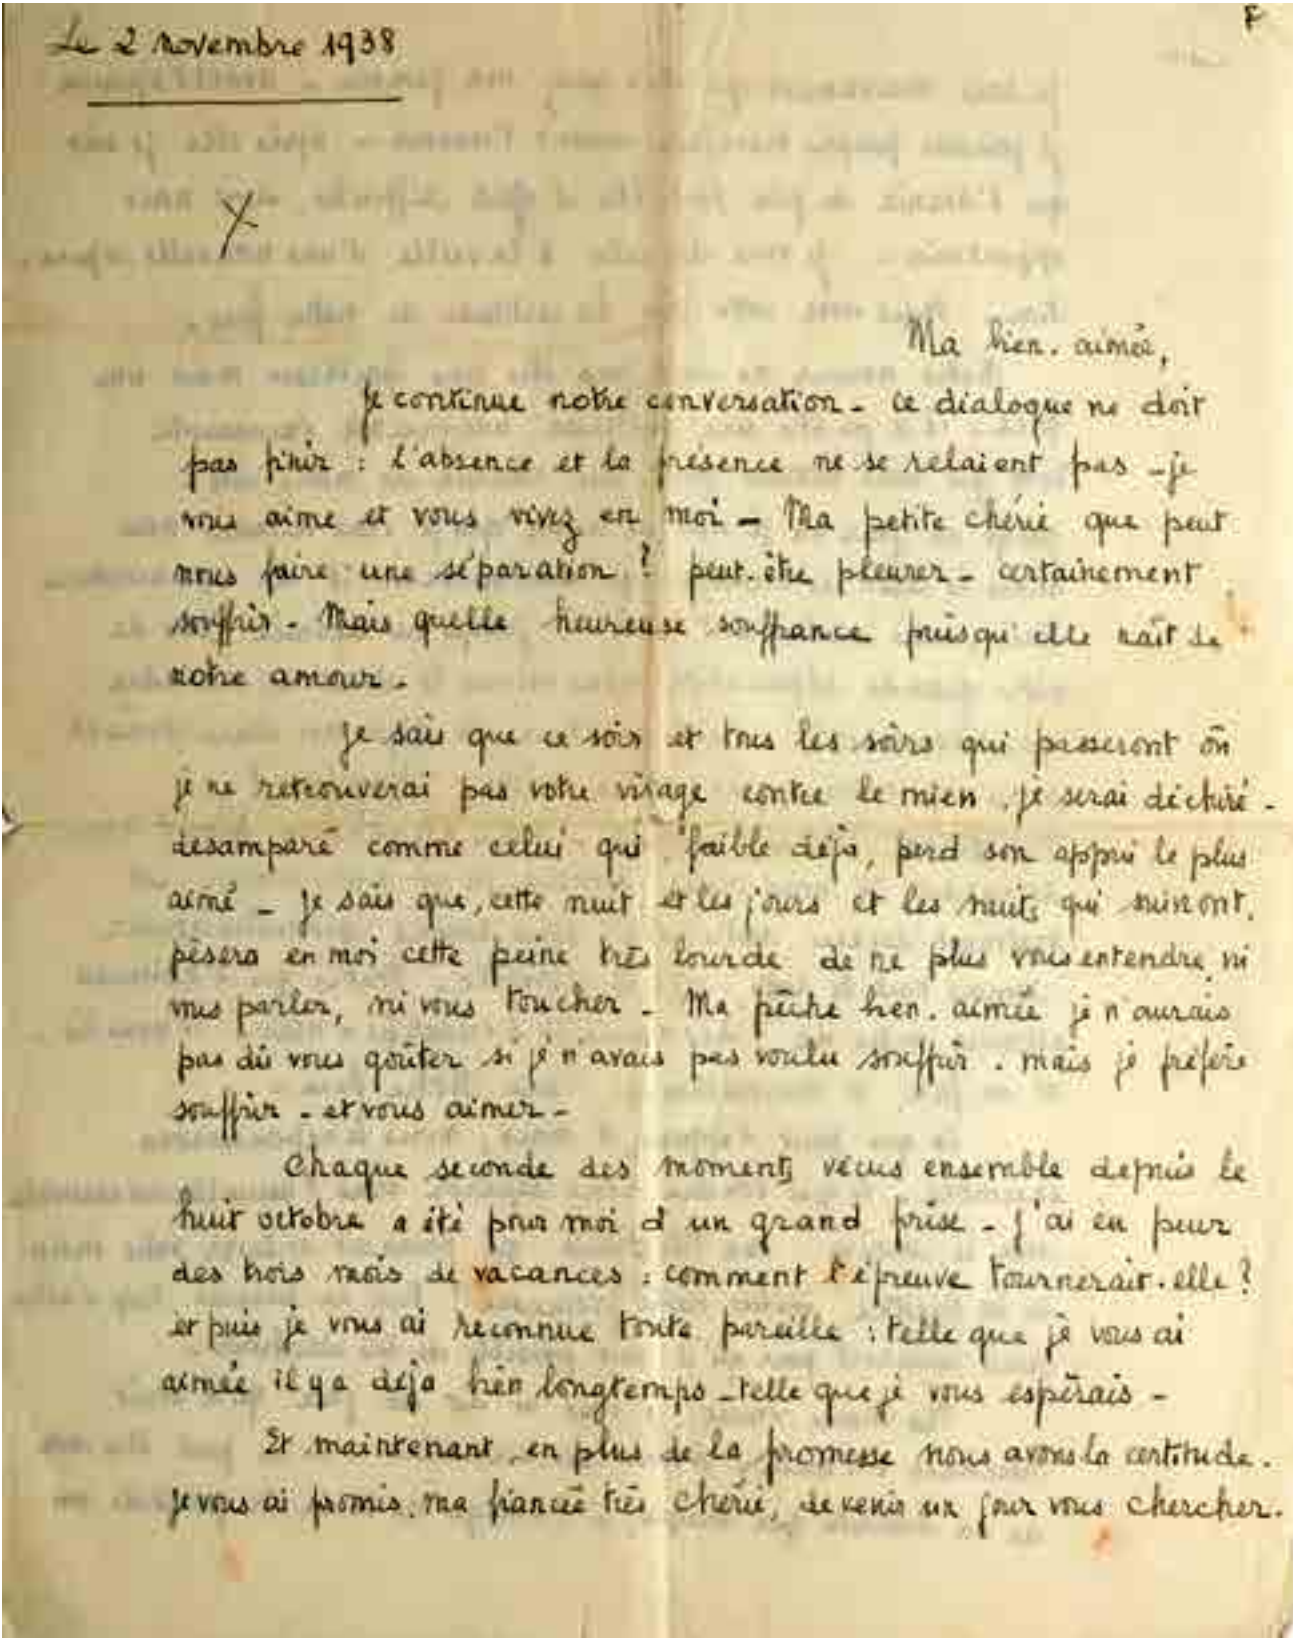 Le 2 novembre 1938
Ma bien-aimée,
Je continue notre conversation - ce dialogue ne doit
pas finir : l'absence et la présence ne se relaient pas - je
vous aime et vous vivez en moi - Ma petite chérie que peut
nous faire une séparation ? peut-être pleurer - certainement
souffrir - Mais quelle heureuse souffrance puisqu'elle naît de
notre amour -
Je sais que ce soir et tous les soirs qui passeront où
je ne retrouverai pas votre visage contre le mien, je serai déchiré -
désamparé comme celui qui, faible déjà, perd son appui le plus
aimé - Je sais que, cette nuit et les jours et les nuits qui suivront,
pèsera en moi cette peine très lourde de ne plus vous entendre, ni
vous parler, ni vous toucher - Ma pêche bien-aimée je n'aurais
pas dû vous goûter si je n'avais pas voulu souffrir. Mais je préfère
souffrir - et vous aimer -
Chaque seconde des moments vécus ensemble depuis le
huit octobre a été pour moi d'un grand prise - J'ai eu peur
des trois mois de vacances : comment l'épreuve tournerait-elle ?
et puis je vous ai reconnue toute pareille : telle que je vous ai
aimée il y a déjà bien longtemps - telle que je vous espérais -
Et maintenant, en plus de la promesse nous avons la certitude.
Je vous ai promis, ma fiancée très chérie, de venir un jour vous chercher.